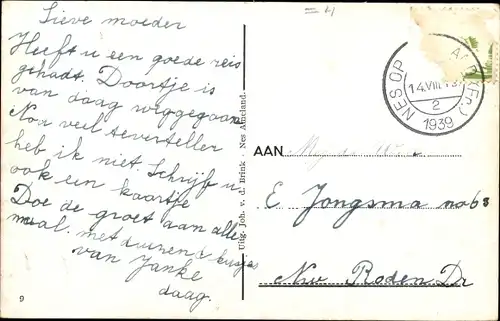 Lieve moeder
Heeft u een goede reis
gehadt. Doortje is
van daag weggegaan
Nou veel te verteller
heb ik niet. Schrijft u
ook een kaartje
Doe de groet aan alle
maal. met duizend kusjes
van Janke
daag.
9
Uitg. Joh. v. d. Brink - Nes Ameland.
= 4
NES OP
14.VIII
2
1939
AAN
E Jongsma no 68
Nw. Roden Dr